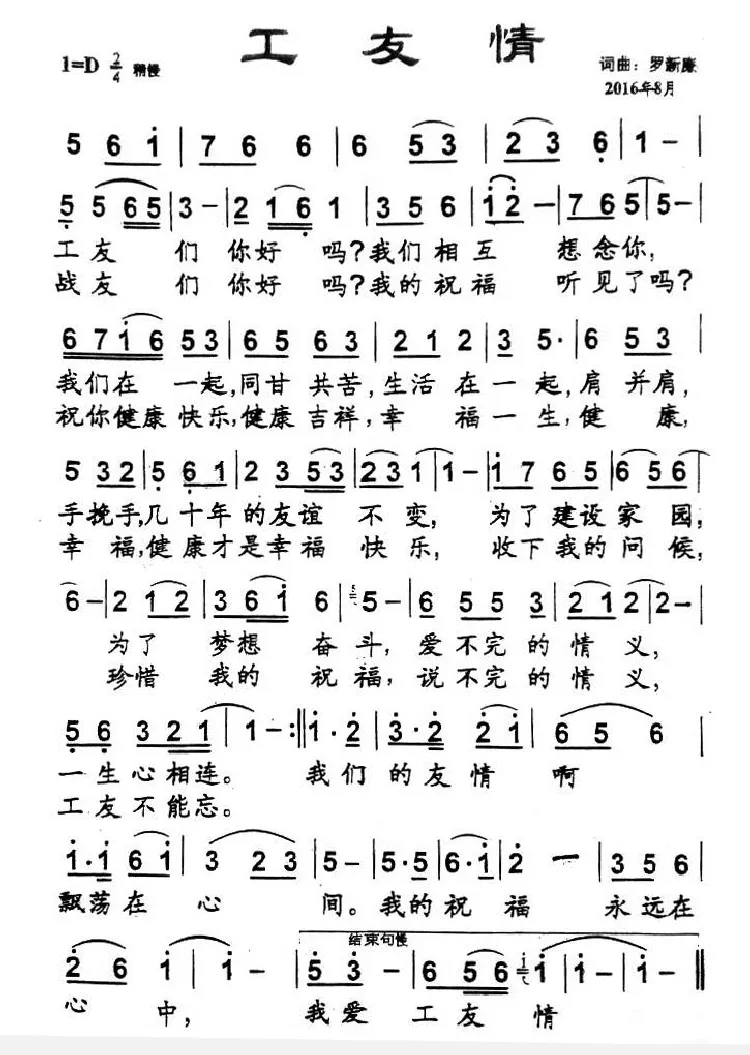 工友情
1=D 2/4 稍慢
词曲：罗新廉
2016年8月
5 6 1 | 7 6 6 | 6 5 3 | 2 3 6 | 1 - |
5 5 6 5 | 3 - | 2 1 6 1 | 3 5 6 | 1 2 - | 7 6 5 | 5 - |
工友 们 你好 吗？我们相互 想念你，
战友 们 你好 吗？我的祝福 听见了吗？
6 7 1 6 5 3 | 6 5 6 3 | 2 1 2 | 3 5· | 6 5 3 |
我们在 一起，同甘共苦，生活在一起，肩并肩，
祝你健康快乐，健康吉祥，幸 福一生，健 康，
5 3 2 | 5 6 1 | 2 3 5 3 | 2 3 1 | 1 - | 1 7 6 5 | 6 5 6 |
手挽手，几十年的友谊 不变，为了建设家园，
幸 福，健康才是幸福 快乐，收下我的问候，
6 - | 2 1 2 | 3 6 1 6 | 5 - | 6 5 5 3 | 2 1 2 | 2 - |
为了 梦想 奋斗，爱不完的情义，
珍惜 我的 祝福，说不完的情义，
5 6 3 2 1 | 1 - :‖ 1· 2 | 3· 2 | 2 1 2 | 6 5 6 |
一生心相连。 我们的友情 啊
工友不能忘。
1· 1 6 1 | 3 2 3 | 5 - | 5· 5 | 6· 1 | 2 - | 3 5 6 |
飘荡在 心 间。我的祝福 永远在
结束句慢
2 6 | 1 - | 5 3 - | 6 5 6 | 1 - | 1 - |
心 中， 我爱 工友 情